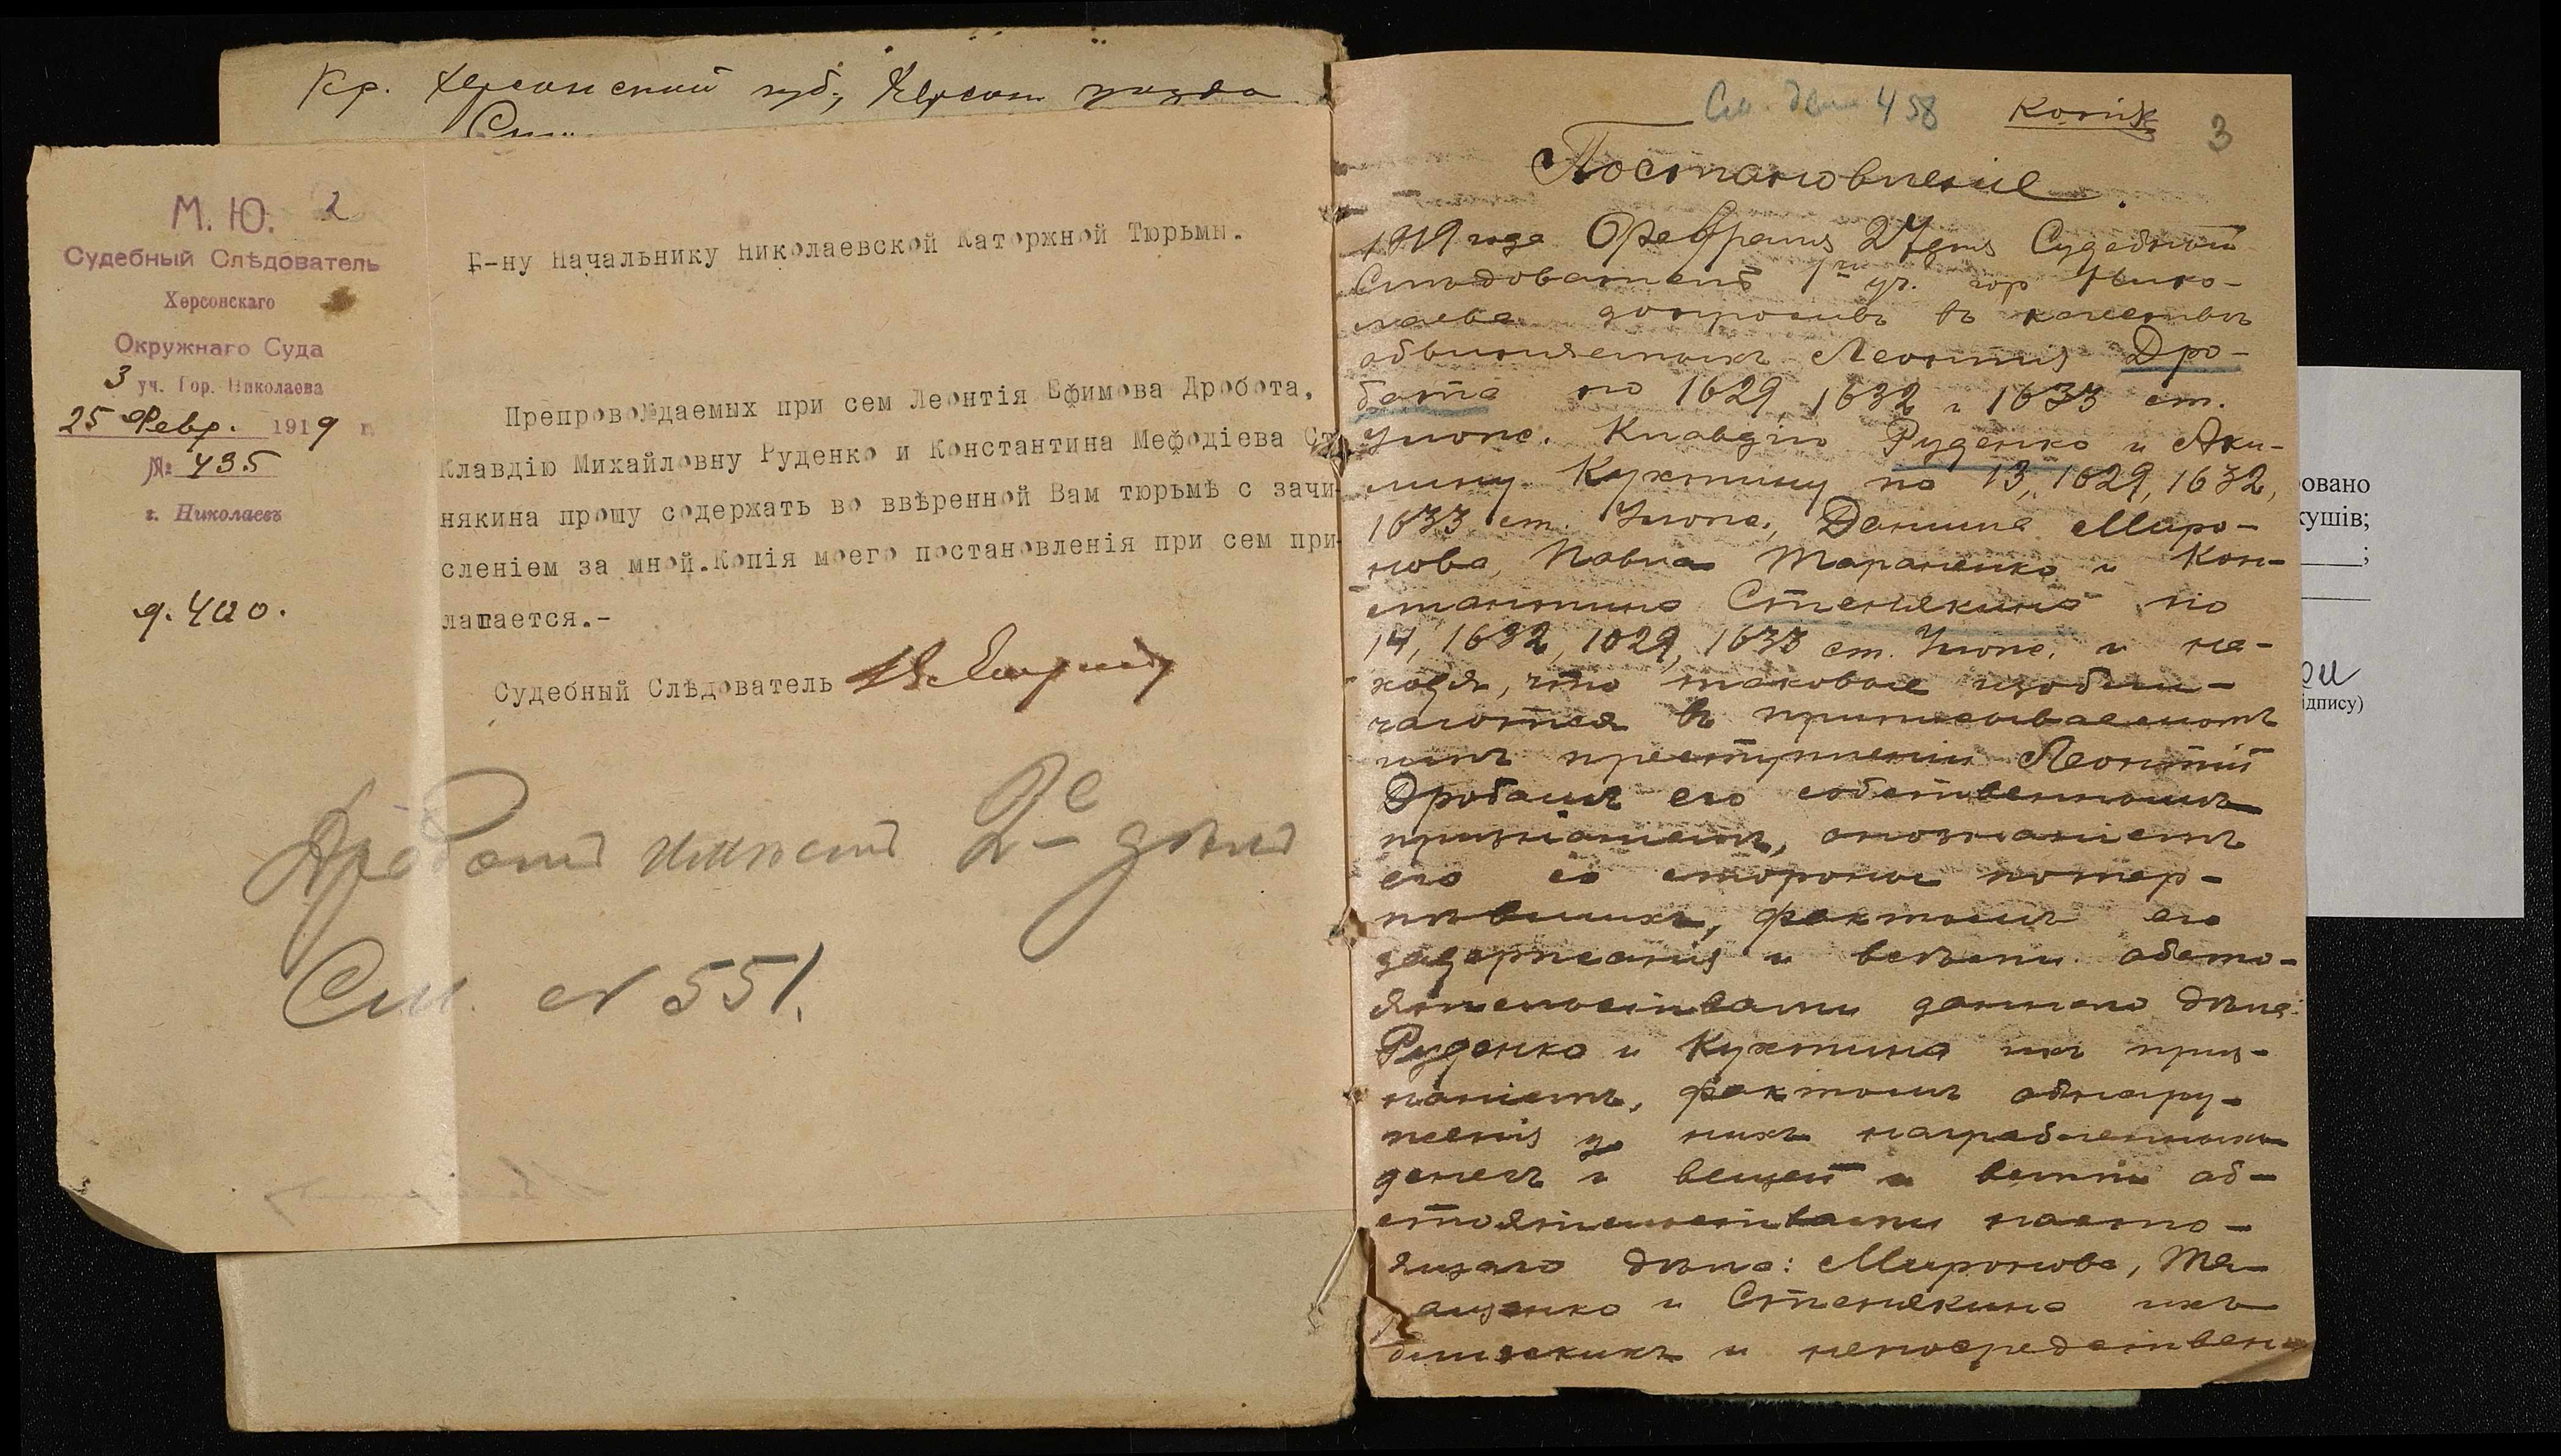 Кр. Херсонской губ., Херсон уезда
М. Ю. 2
Судебный Слѣдователь
Херсонскаго
Окружнаго Суда
3 уч. Гор. Николаева
25 Февр. 1919 г.
№ 435
г. Николаевъ
д. 400.
Г-ну Начальнику Николаевской Каторжной Тюрьмы.
Препровождаемых при сем Леонтія Ефимова Дробота,
Клавдію Михайловну Руденко и Константина Мефодіева Ст
някина прошу содержать во ввѣренной Вам тюрьмѣ с зачи-
сленіем за мной. Копія моего постановленія при сем при-
лагается.-
Судебный Слѣдователь
имѣет 2е дѣло
См. № 551.
См. дело 458
Копія
3
Постановленіе.
1919 года Февраля 24 дня Судебный
Слѣдователь 1го уч. гор Нико-
лаева допросивъ въ качествѣ
обвиняемыхъ Леонтія Дро-
бота по 1629, 1632 и 1633 ст.
Улож. Клавдію Руденко и Аку-
лину Кухтину по 13, 1629, 1632,
1633 ст. Улож., Данила Миро-
нова, Павла Тараненко и Кон-
стантина Стенякина по
14, 1632, 1629, 1633 ст. Улож. и на-
ходя, что таковые изобли-
чаются въ приписываемомъ
имъ преступленіи Леонтій
Дроботъ его собственнымъ
признаніемъ, опознаніемъ
его со стороны потер-
пѣвшихъ, фактомъ его
задержанія и всѣми обсто-
ятельствами даннаго дѣла:
Руденко и Кухтина ихъ приз-
наніемъ, фактомъ обнару-
женія у нихъ награбленныхъ
денегъ и вещей и всѣми об-
стоятельствами насто-
ящаго дѣла: Миронова, Та-
и Стенякина ихъ
близкихъ и непосредствен
овано
кушів;
;
ідпису)